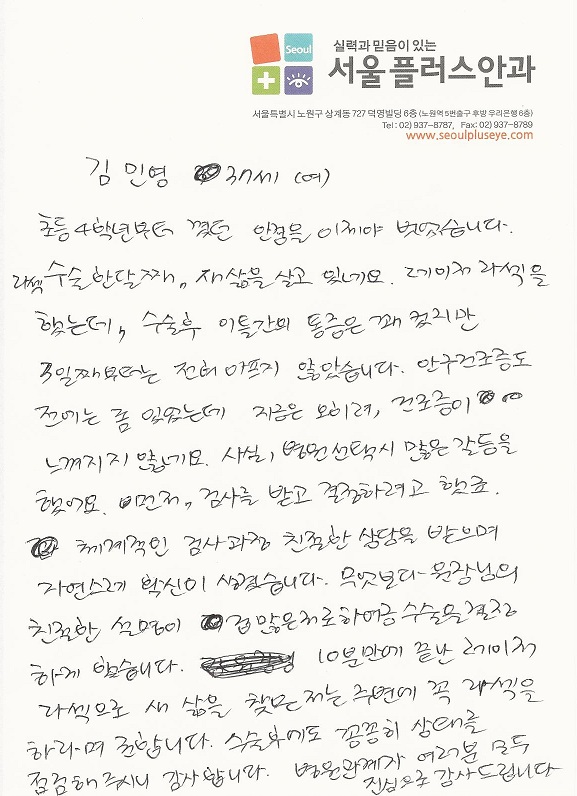 Seoul
실력과 믿음이 있는
서울플러스안과
서울특별시 노원구 상계동 727 덕영빌딩 6층 (노원역 5번출구 후방 우리은행 6층)
Tel : 02) 937-8787, Fax: 02) 937-8789
www.seoulpluseye.com
김민영 37세 (여)
초등4학년부터 꼈던 안경을 이제야 벗었습니다.
라섹 수술 한달째, 새삶을 살고 있네요. 레이저 라섹을
했는데, 수술후 이틀간의 통증은 꽤 컸지만
3일째부터는 전혀 아프지 않았습니다. 안구건조증도
전에는 좀 있었는데 지금은 오히려, 건조증이
느껴지지 않네요. 사실, 병원선택시 많은 갈등을
했어요. 먼저, 검사를 받고 결정하려고 했죠.
체계적인 검사과정 친절한 상담을 받으며
자연스레 확신이 생겼습니다. 무엇보다 원장님의
친절한 설명이 겁많은 저로하여금 수술을 결정
하게 했습니다. 10분만에 끝난 레이저
라섹으로 새 삶을 찾은 저는 주변에 꼭 라섹을
하라며 권합니다. 수술후에도 꼼꼼히 상태를
점검해 주시니 감사합니다. 병원관계자 여러분 모두
진심으로 감사드립니다